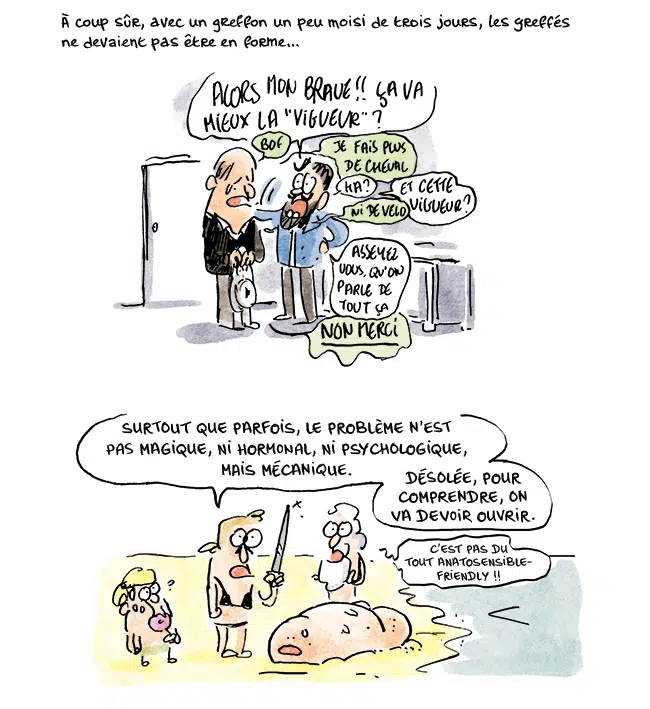 À coup sûr, avec un greffon un peu moisi de trois jours, les greffés
ne devaient pas être en forme...
ALORS MON BRAVE!! ÇA VA
MIEUX LA "VIGUEUR"?
BOF
JE FAIS PLUS
DE CHEVAL
HA?
ET CETTE
VIGUEUR?
NI DE VÉLO
ASSEYEZ
VOUS, QU'ON
PARLE DE
TOUT ÇA
NON MERCI
SURTOUT QUE PARFOIS, LE PROBLÈME N'EST
PAS MAGIQUE, NI HORMONAL, NI PSYCHOLOGIQUE,
MAIS MÉCANIQUE.
DÉSOLÉE, POUR
COMPRENDRE, ON
VA DEVOIR OUVRIR.
C'EST PAS DU
TOUT ANATOSENSIBLE-
FRIENDLY !!
?